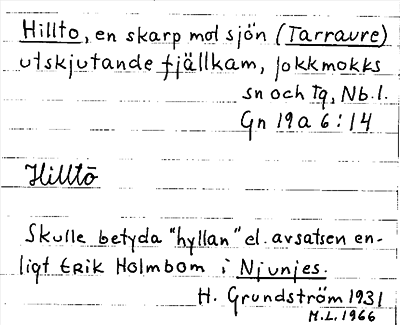 Hillto, en skarp mot sjön (Tarraure)
utskjutande fjällkam, Jokkmokks
sn och tg, Nb.l.
Gn 19 a 6:14
Hilltō
Skulle betyda "hyllan" el. avsatsen en-
ligt Erik Holmbom i Njunjes.
H. Grundström 1931
M.L. 1966